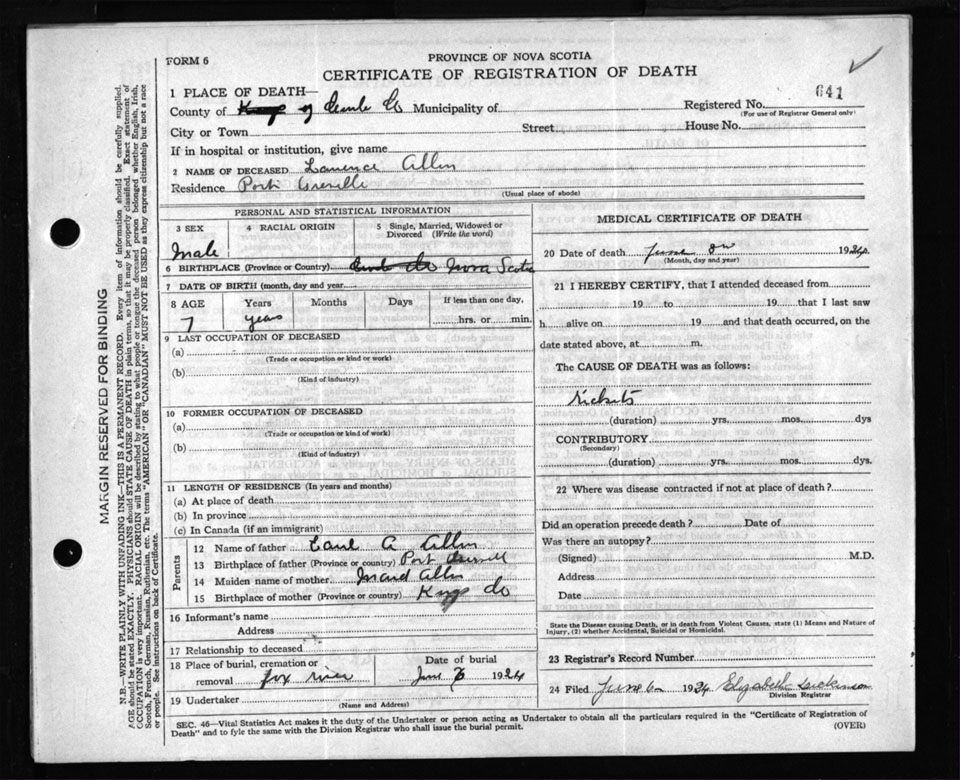 FORM 6
PROVINCE OF NOVA SCOTIA
CERTIFICATE OF REGISTRATION OF DEATH
1 PLACE OF DEATH—
County of Kings of Cumb Co Municipality of
Registered No. 641
(For use of Registrar General only)
City or Town Street House No.
If in hospital or institution, give name
2 NAME OF DECEASED Lawrence Allen
Residence Port Greville
(Usual place of abode)
PERSONAL AND STATISTICAL INFORMATION
3 SEX
Male
4 RACIAL ORIGIN
5 Single, Married, Widowed or
Divorced (Write the word)
6 BIRTHPLACE (Province or Country) Nova Scotia
7 DATE OF BIRTH (month, day and year)
8 AGE Years Months Days If less than one day,
7 years hrs. or min.
9 LAST OCCUPATION OF DECEASED
(a)
(Trade or occupation or kind or work)
(b)
(Kind of industry)
10 FORMER OCCUPATION OF DECEASED
(a)
(Trade or occupation or kind of work)
(b)
(Kind of industry)
11 LENGTH OF RESIDENCE (In years and months)
(a) At place of death
(b) In province
(c) In Canada (if an immigrant)
Parents
12 Name of father A Allen
13 Birthplace of father (Province or country) Port
14 Maiden name of mother Maud Allen
15 Birthplace of mother (Province or country) Kings Co
16 Informant's name
Address
17 Relationship to deceased
18 Place of burial, cremation or
removal fox river
Date of burial
June 6 1924
19 Undertaker
(Name and Address)
MEDICAL CERTIFICATE OF DEATH
20 Date of death June 1924
(Month, day and year)
21 I HEREBY CERTIFY, that I attended deceased from
19 to 19 that I last saw
h alive on 19 and that death occurred, on the
date stated above, at m.
The CAUSE OF DEATH was as follows:
rickets
(duration) yrs. mos. dys
CONTRIBUTORY
(Secondary)
(duration) yrs. mos. dys.
22 Where was disease contracted if not at place of death?
Did an operation precede death? Date of
Was there an autopsy?
(Signed) M.D.
Address
Date
State the Disease causing Death, or in death from Violent Causes, state (1) Means and Nature of
Injury, (2) whether Accidental, Suicidal or Homicidal.
23 Registrar's Record Number
24 Filed June 6 1924 Elizabeth Dickinson
Division Registrar
SEC. 46—Vital Statistics Act makes it the duty of the Undertaker or person acting as Undertaker to obtain all the particulars required in the "Certificate of Registration of
Death" and to fyle the same with the Division Registrar who shall issue the burial permit.
(OVER)
MARGIN RESERVED FOR BINDING
N.B.—WRITE PLAINLY WITH UNFADING INK—THIS IS A PERMANENT RECORD. Every item of information should be carefully supplied.
AGE should be stated EXACTLY. PHYSICIANS should STATE CAUSE OF DEATH in plain terms, so that it may be properly classified. Exact statement of
OCCUPATION is very important. RACIAL ORIGIN will be described by stating to what people or tongue the deceased person belonged whether English, Irish,
Scotch, French, German, Russian, Ruthenian, etc. The terms "AMERICAN" OR "CANADIAN" MUST NOT BE USED as they express citizenship but not a race
or people. See instructions on back of Certificate.